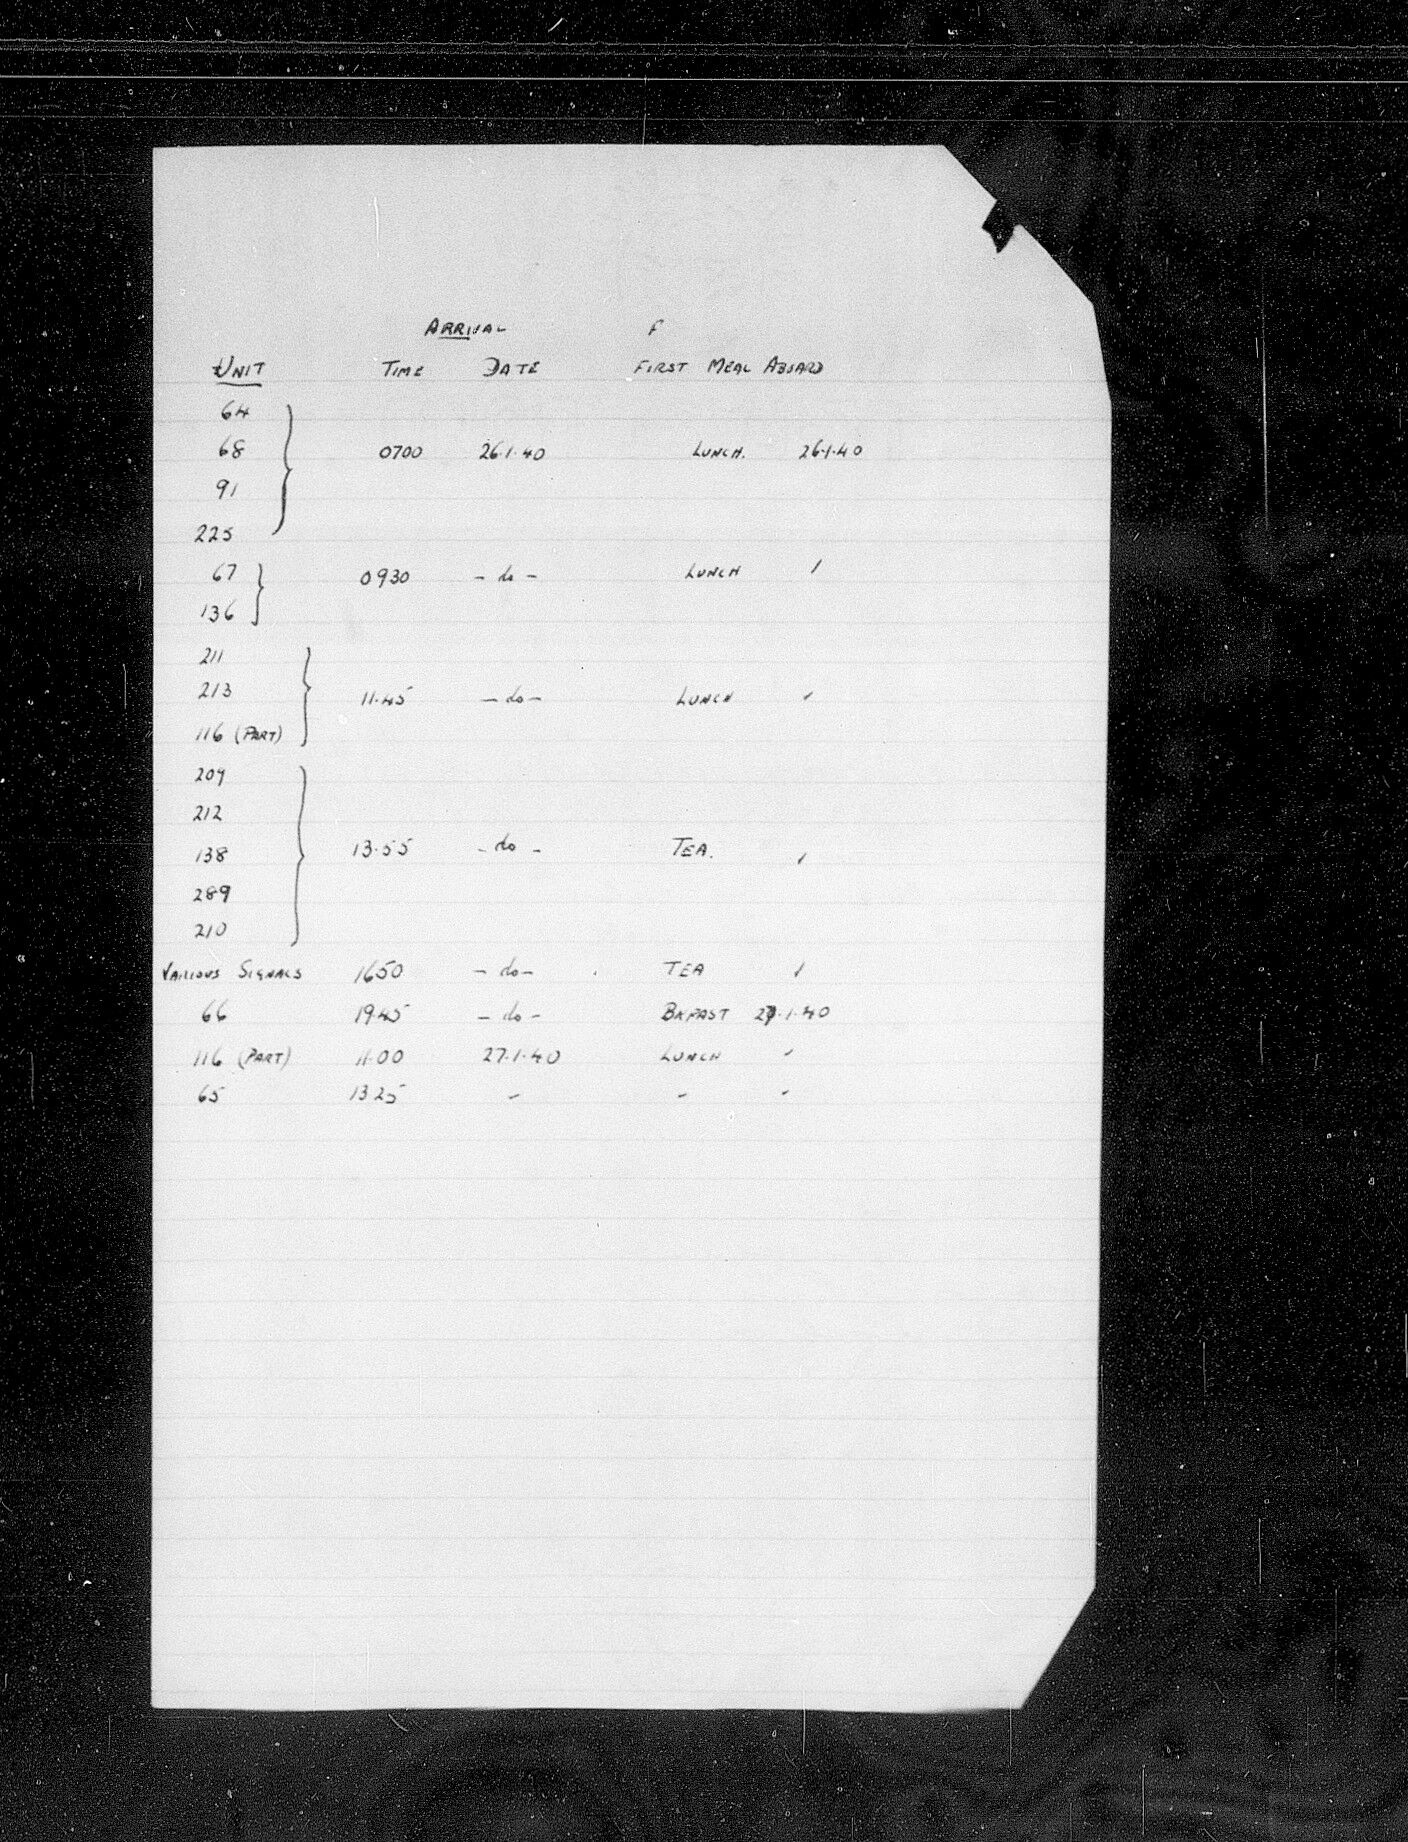 ARRIVAL F
UNIT TIME DATE FIRST MEAL ABOARD
64
68 0700 26.1.40 LUNCH. 26.1.40
91
225
67 0930 - do - LUNCH /
136
211
213 11.45 - do - LUNCH /
116 (PART)
209
212
138 13.55 - do - TEA. /
289
210
VARIOUS SIGNALS 1650 - do - TEA /
66 19.45 - do - BKFAST 27.1.40
116 (PART) 11.00 27.1.40 LUNCH /
65 1325 - - -